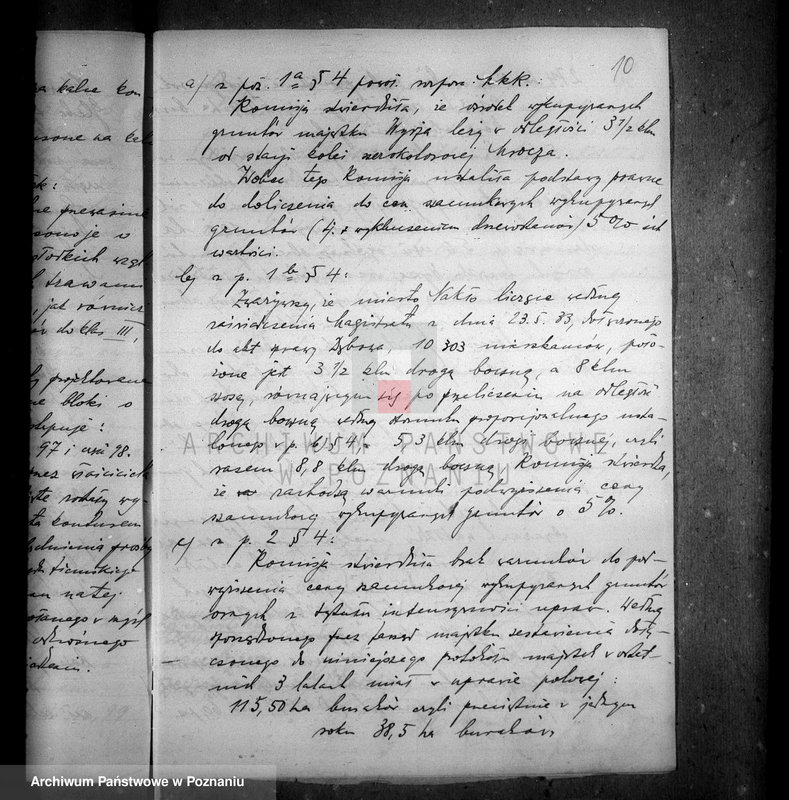 10
a kalse kom
a/ z poz. 1ª § 4 powoł. rozporz. tkk.:
Komisja stwierdziła, że ośrodek wykupywanych
gruntów majątku Wyrza leży w odległości 3 1/2 klm
od stacji kolei szerokotorowej Mrocza.
Wobec tego Komisja ustaliła podstawy prawne
do doliczenia do cen szacunkowych wykupywanych
gruntów (tj. z wykluczeniem drzewostanów) 5% ich
wartości.
b/ z p. 1ᵇ § 4:
Zważywszy, że miasto Nakło liczące według
zaświadczenia Magistratu z dnia 23.5.33, dołączonego
do akt sprawy Dębowa, 10 303 mieszkańców, poło-
żone jest 3 1/2 klm drogą boczną, a 8 klm
szosą, równającym się, po przeliczeniu na odległość
drogą boczną według stosunku proporcjonalnego usta-
lonego w p. 6) § 4. 5,3 klm drogi bocznej, czyli
razem 8,8 klm drogą boczną, Komisja stwierdza,
że zachodzą warunki podwyższenia ceny
szacunkowej wykupywanych gruntów o 5%.
c/ z p. 2 § 4:
Komisja stwierdziła brak warunków do pod-
wyższenia ceny szacunkowej wykupywanych gruntów
ornych z tytułu intensywności upraw. Według
sporządzonego przez zarząd majątku zestawienia dołą-
czonego do niniejszego protokołu majątek w ostat-
nich 3 latach miał w uprawie polowej:
115,50 ha buraków czyli przeciętnie w jednym
roku 38,5 ha buraków
jak również
do klas III,
projektowane
ne bloki o
97 i część 98.
ARCHIWUM PAŃSTWOWE
W POZNANIU
Archiwum Państwowe w Poznaniu